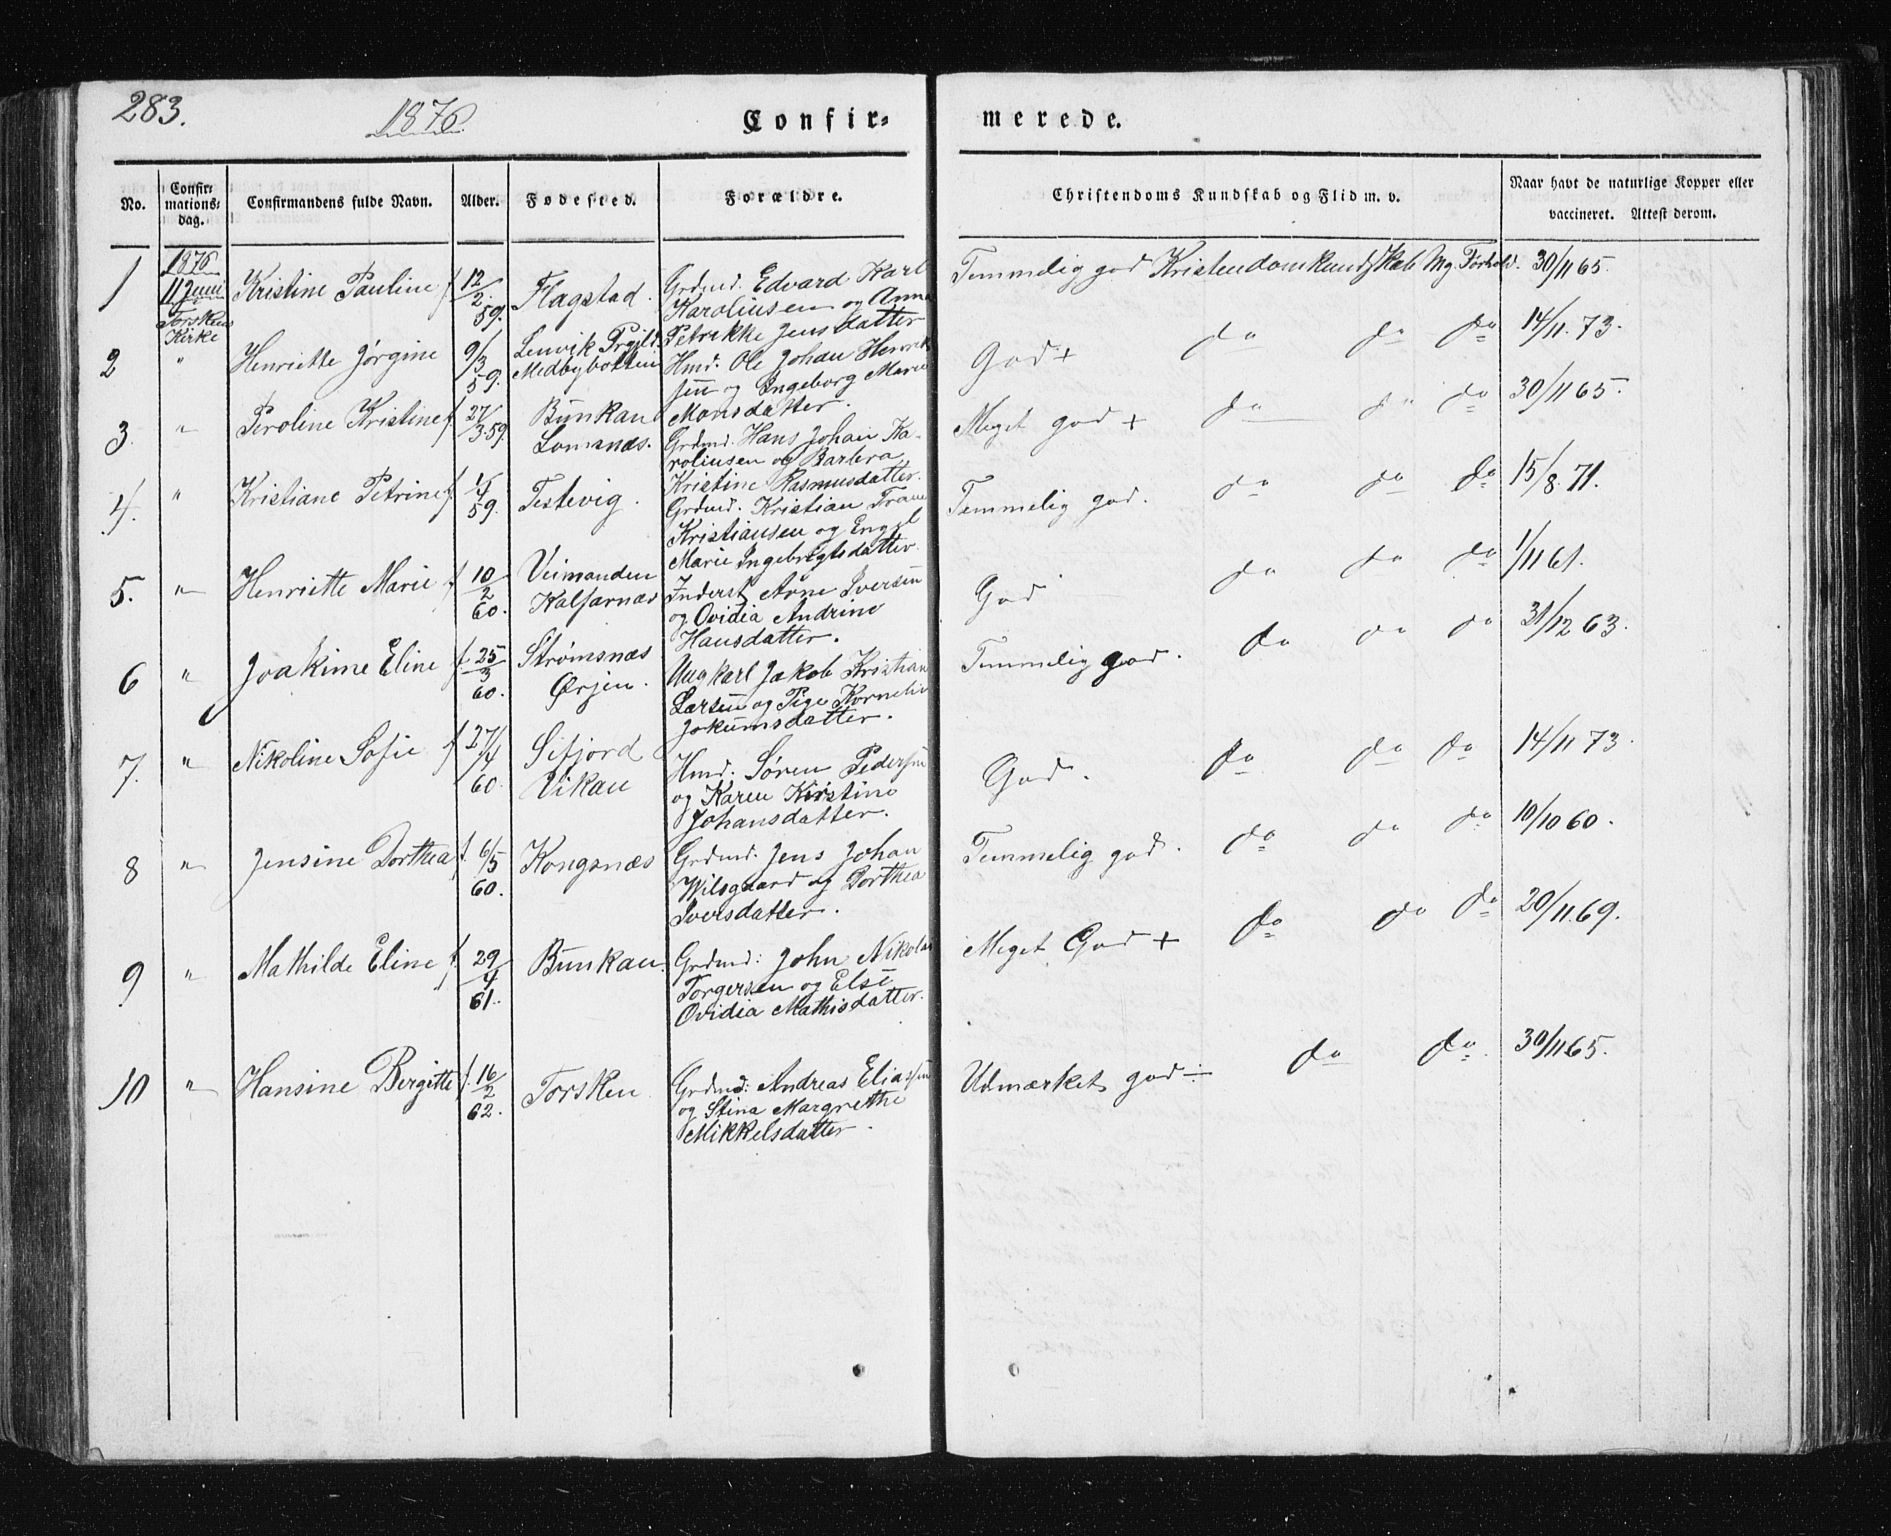 283.
1876
Confir-
merede.
No.
Confir-
mations-
dag.
Confirmandens fulde Navn.
Alder.
Fødested.
Forældre.
Christendoms Kundskab og Flid m. v.
Naar havt de naturlige Kopper eller
vaccineret. Attest derom.
1
1876
11 Juni
Torskens
Kirke
Kristine Pauline f
12/2 59.
Flagstad.
Grdmd. Edvard Karl
Karoliusen og Anna
Petrikke Jensdatter
Temmelig god Kristendomskundskab Mg. Forhold.
30/11 65.
2
"
Henriette Jørgine
9/3 59.
Lenvik Prgjld.
Medbybotten
Hmd. Ole Johan Henrik
sen og Ingeborg Marie
Monsdatter.
God +
do do do
14/11. 73.
3.
"
Peroline Kristine f
27/3 59.
Bunkan
Lomsnæs.
Grdmd. Hans Johan Ka-
roliusen og Barbra
Kristine Rasmusdatter.
Meget god +
do do do
30/11 65.
4.
"
Kristiane Petrine f
1/4 59.
Testevig.
Grdmd. Kristian Trane
Kristiansen og Engel
Marie Ingebrigtsdatter.
Temmelig god.
do do do
15/8. 71.
5.
"
Henriette Marie f
10/2 60.
Veimanden
Kalfarnæs
Inderst Arne Iversen
og Ovidia Andrine
Hansdatter.
God
do do do
1/11 61.
6
"
Joakime Eline f.
25/3 60.
Strømsnæs
Ørjen.
Ungkarl Jakob Kristian
Larsen og Pige Kornelie
Jokumsdatter.
Temmelig god.
do do do
31/12 63.
7.
"
Nikoline Sofie f
27/4 60.
Sifjord
Vikan
Hmd. Søren Pedersen
og Karen Kirstine
Johansdatter.
God.
do do do
14/11 73.
8
"
Jensine Dorthea f.
6/5 60.
Kongsnæs
Grdmd. Jens Johan
Wilsgaard og Dorthea
Iversdatter.
Temmelig god.
do do do
10/10 60.
9
"
Mathilde Eline f
29/4 61.
Bunkan.
Grdmd: John Nikolai
Torgersen og Else
Ovidia Mathisdatter.
Meget God +
do do do
20/11. 69.
10
"
Hansine Bergitte f.
16/2 62.
Torsken
Grdmd: Andreas Eliassen
og Stina Margrethe
Mikkelsdatter.
Udmærket god ÷
do do
30/11 65.